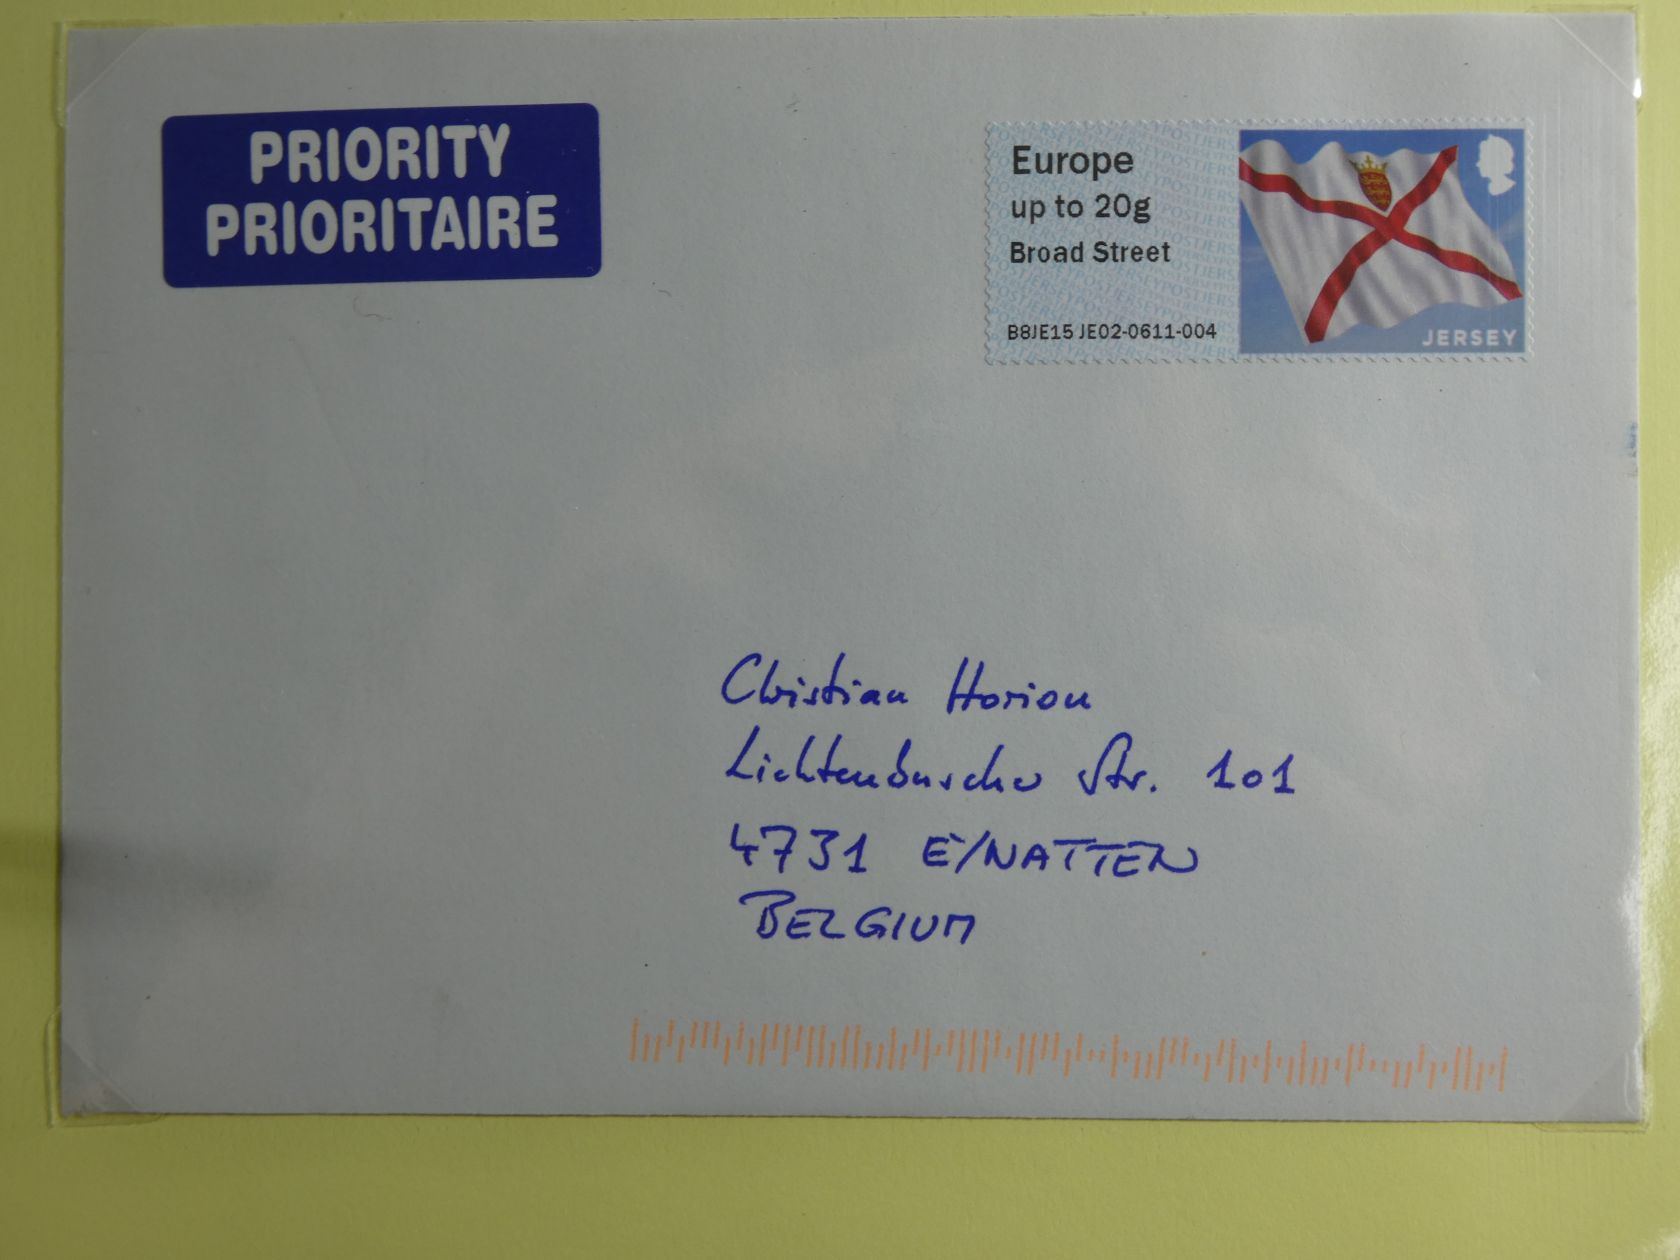 PRIORITY
PRIORITAIRE
Europe
up to 20g
Broad Street
B8JE15 JE02-0611-004
JERSEY
Christian Horion
Lichtenbuscher Str. 101
4731 E/NATTEN
BELGIUM